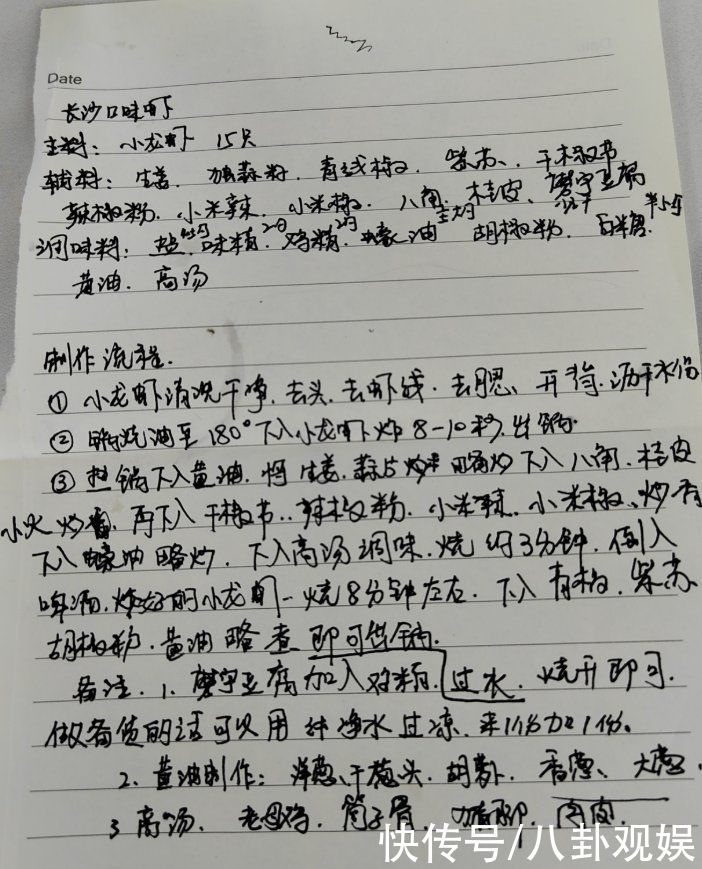 Date
长沙口味虾
主料：小龙虾 15只
辅料：生姜、加蒜籽、青线椒、紫苏、干椒节
辣椒粉、小米辣、小米椒、八角、桂皮、魔宇豆腐
调味料：盐、味精、鸡精、蚝油 胡椒粉、白糖、半小勺
黄油、高汤
制作流程.
① 小龙虾清洗干净、去头、去虾线、去腮、开背、沥干水份
② 锅烧油至180°下入小龙虾炸8-10秒.出锅.
③ 热锅下入黄油.将生姜、蒜片 略炒下入八角、桂皮
小火炒香.再下入干椒节、辣椒粉、小米辣、小米椒、炒香
下入蚝油略炒、下入高汤调味.烧约3分钟.倒入
啤酒.炸好的小龙虾一烧8分钟左右.下入青椒、紫苏、
胡椒粉.黄油略煮即可出锅.
备注.1.魔宇豆腐加入对料.过水.烧开即可.
做备货的话可以用纯净水过凉.来1份加1份。
2.黄油制作：洋葱、干葱头、胡萝卜.香葱、大葱
3 高汤.老母鸡.筒子骨、猪脚.肉皮.
快传号/八卦观娱